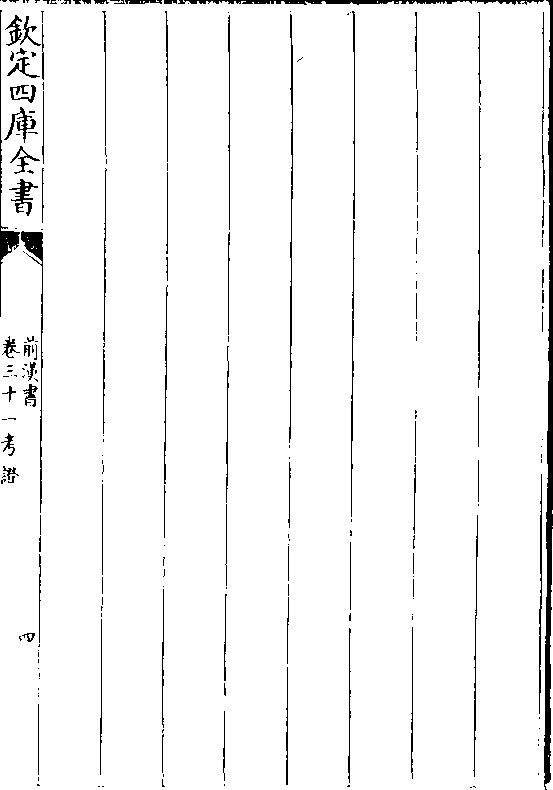 欽定四庫全書
前漢書
卷三十一考證
四